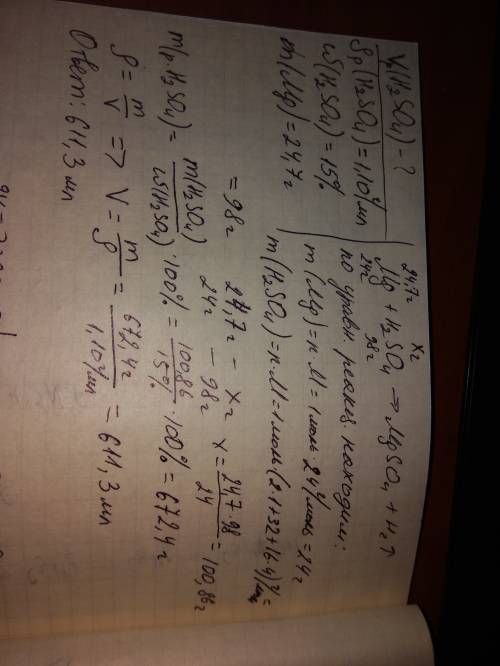 Vp(H₂SO₄) - ?
ρp(H₂SO₄) = 1,10 г/мл
ω(H₂SO₄) = 15%
m(Mg) = 24,7 г
24,7г xг
Mg + H₂SO₄ → MgSO₄ + H₂↑
24г 98г
по уравн. реакц. находим:
m(Mg) = n·M = 1 моль · 24 г/моль = 24г
m(H₂SO₄) = n·M = 1 моль (2·1+32+16·4) г/моль =
= 98г
24,7г - xг x = 247·98 / 24 = 100,86г
24г - 98г
m(p.H₂SO₄) = m(H₂SO₄) / ω(H₂SO₄) · 100% = 100,86 / 15% · 100% = 672,4г
ρ = m/V => V = m/ρ = 672,4г / 1,10 г/мл = 611,3 мл
Ответ: 611,3 мл